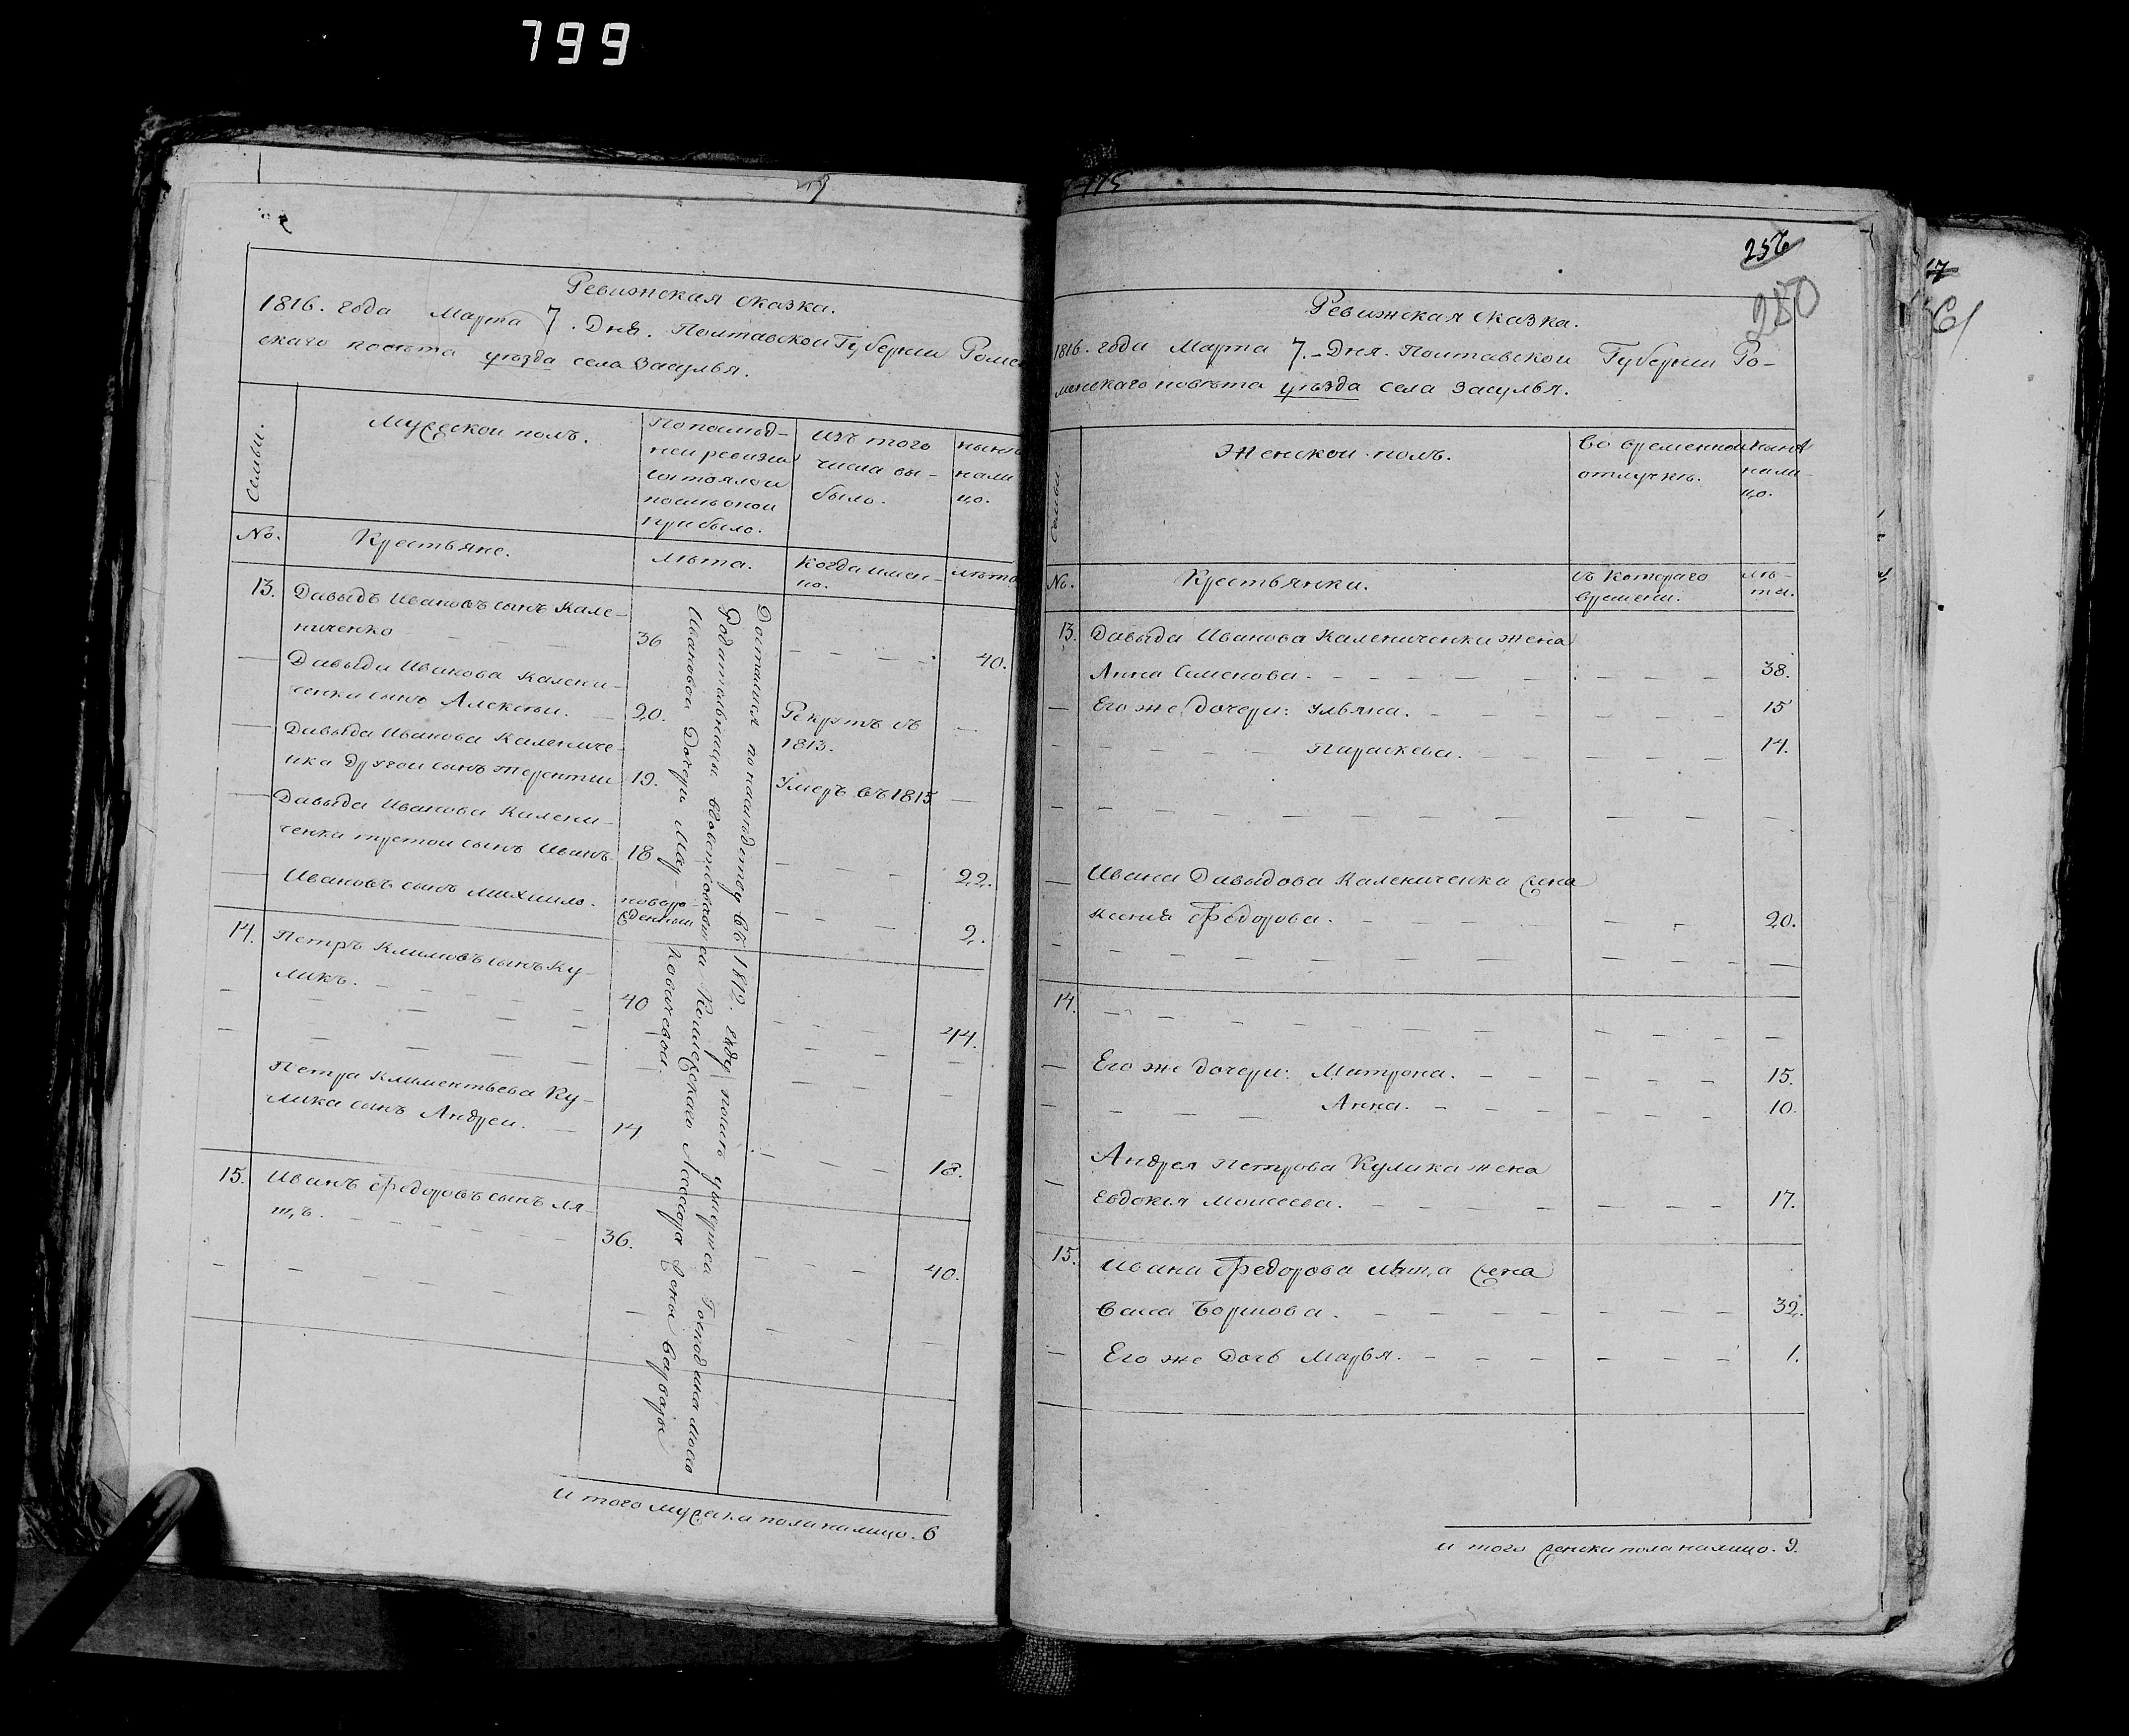 799
Ревижская сказка.
1816. года Марта 7. Дня. Полтавской Губернии Ромен
скаго повѣта уѣзда села Засулья.
Семьи.
Мужеской полъ.
По послѣд-
ней ревизіи
состояло и
послѣ оной
прибыло.
изъ того
числа вы-
было.
нынѣ
нали
цо.
No.
Крестьяне.
лѣта.
Когда имен-
но.
лѣта
13.
Давыдъ Ивановъ сынъ Кале-
ниченко
36
40.
Давыда Иванова Калени-
ченка сынъ Алексѣй.
20.
Рекрутъ въ
1813.
Давыда Иванова Каленичен-
ка другой сынъ Терентій
19.
Умеръ въ 1815
Давыда Иванова Калени-
ченка третой сынъ Иванъ
18
22.
Ивановъ сынъ Михайло.
новоро-
жденный
2.
14.
Петръ Климовъ сынъ Ку-
ликъ.
40
44.
Петра Климентьева Ку-
лика сынъ Андрей.
14
18.
15.
Иванъ Федоровъ сынъ Ля-
щъ.
36.
40.
Достался по наслѣдству въ 1812. году послѣ умершей Господина моего
Родительницы вдовствовавшей Коллежскаго Асессора жены Варвары
Ивановой Дочери Мар-
Ковачевой.
И того мужеска пола налицо. 6
175
256
280
Ревижская сказка.
1816. года Марта 7. Дня. Полтавской Губернии Ро-
менскаго повѣта уѣзда села Засулья.
Семьи
Женской полъ.
Во временной
отлучкѣ.
нынѣ
нали-
цо.
No.
Крестьянки.
съ котораго
времени.
лѣ-
та.
13.
Давыда Иванова Каленичинка жена
Анна Семенова.
38.
Его же дочери: Ульяна.
15
Параскева.
14.
Ивана Давыдова Калениченка жена
Ксенія Федорова.
20.
14.
Его же дочери: Матрона.
15.
Анна.
10.
Андрея Петрова Кулика жена
Евдокія Моисеева.
17.
15.
Ивана Федорова Ляща жена
Васса Борисова.
32.
Его же дочь Марья.
1.
И того женска пола налицо. 9.
17
61